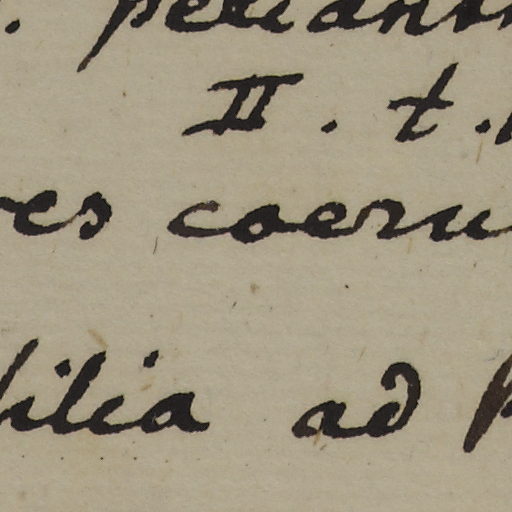 . peliant
II. t.
res coeru
filia ad p